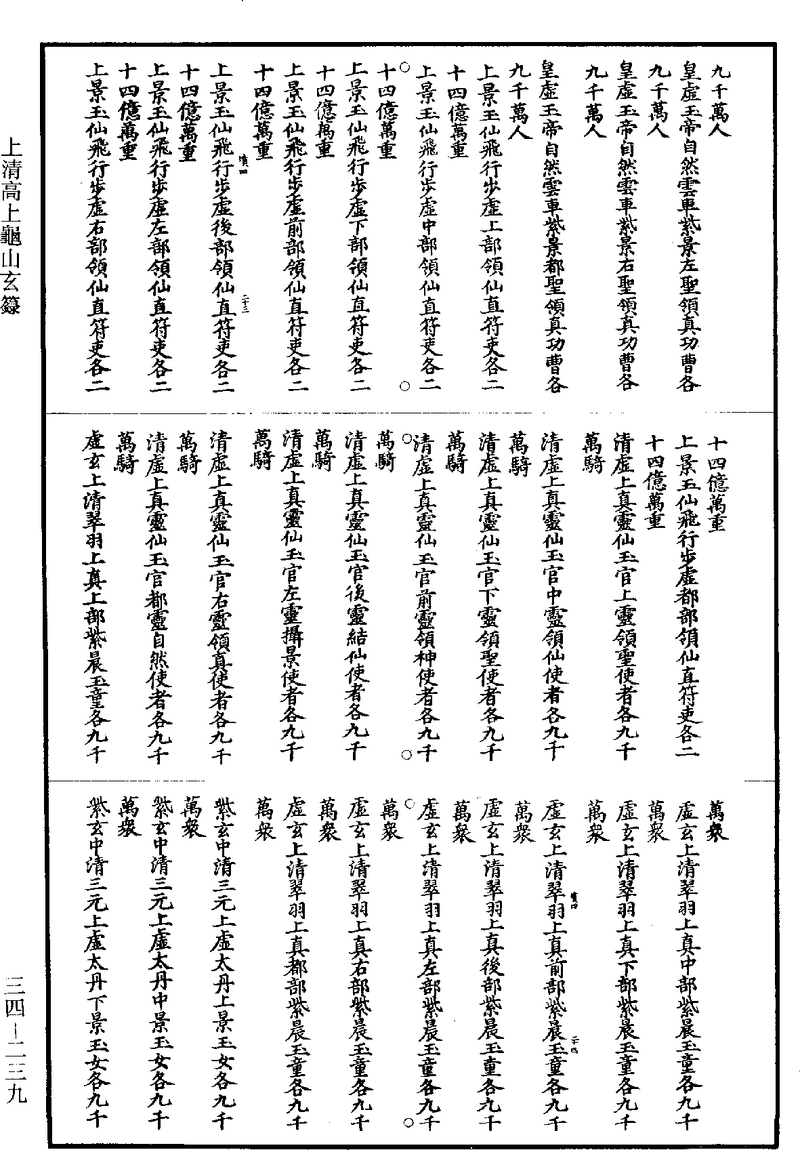 九千萬人
皇虛玉帝自然雲車紫景左聖領真功曹各
九千萬人
皇虛玉帝自然雲車紫景右聖領真功曹各
九千萬人
皇虛玉帝自然雲車紫景都聖領真功曹各
九千萬人
上景玉仙飛行步虛上部領仙直符吏各二
十四億萬重
上景玉仙飛行步虛中部領仙直符吏各二
十四億萬重
上景玉仙飛行步虛下部領仙直符吏各二
十四億萬重
上景玉仙飛行步虛前部領仙直符吏各二
十四億萬重
上景玉仙飛行步虛後部領仙直符吏各二
十四億萬重
上景玉仙飛行步虛左部領仙直符吏各二
十四億萬重
上景玉仙飛行步虛右部領仙直符吏各二
十四億萬重
上景玉仙飛行步虛都部領仙直符吏各二
十四億萬重
清虛上真靈仙玉官上靈領聖使者各九千
萬騎
清虛上真靈仙玉官中靈領仙使者各九千
萬騎
清虛上真靈仙玉官下靈領聖使者各九千
萬騎
清虛上真靈仙玉官前靈領神使者各九千
萬騎
清虛上真靈仙玉官後靈結仙使者各九千
萬騎
清虛上真靈仙玉官左靈攝景使者各九千
萬騎
清虛上真靈仙玉官右靈領真使者各九千
萬騎
清虛上真靈仙玉官都靈自然使者各九千
萬騎
虛玄上清翠羽上真上部紫晨玉童各九千
萬衆
虛玄上清翠羽上真中部紫晨玉童各九千
萬衆
虛玄上清翠羽上真下部紫晨玉童各九千
萬衆
虛玄上清翠羽上真前部紫晨玉童各九千
萬衆
虛玄上清翠羽上真後部紫晨玉童各九千
萬衆
虛玄上清翠羽上真左部紫晨玉童各九千
萬衆
虛玄上清翠羽上真右部紫晨玉童各九千
萬衆
虛玄上清翠羽上真都部紫晨玉童各九千
萬衆
紫玄中清三元上虛太丹上景玉女各九千
萬衆
紫玄中清三元上虛太丹中景玉女各九千
萬衆
紫玄中清三元上虛太丹下景玉女各九千
上清高上龜山玄籙
三四—二三九